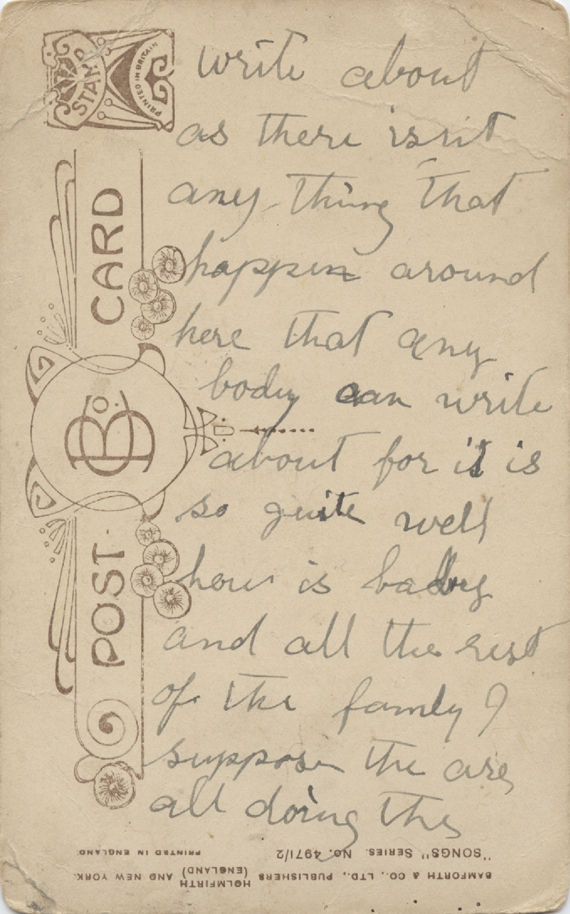 STAMP
PRINTED IN BRITAIN
write about
as there isn't
any thing that
happen around
here that any
body can write
about for it is
so quite well
how is baby
and all the rest
of the family I
suppose the are
all doing the
POST CARD
B & Co.
BAMFORTH & CO., LTD., PUBLISHERS HOLMFIRTH (ENGLAND) AND NEW YORK.
"SONGS" SERIES. No. 4971/2 PRINTED IN ENGLAND.